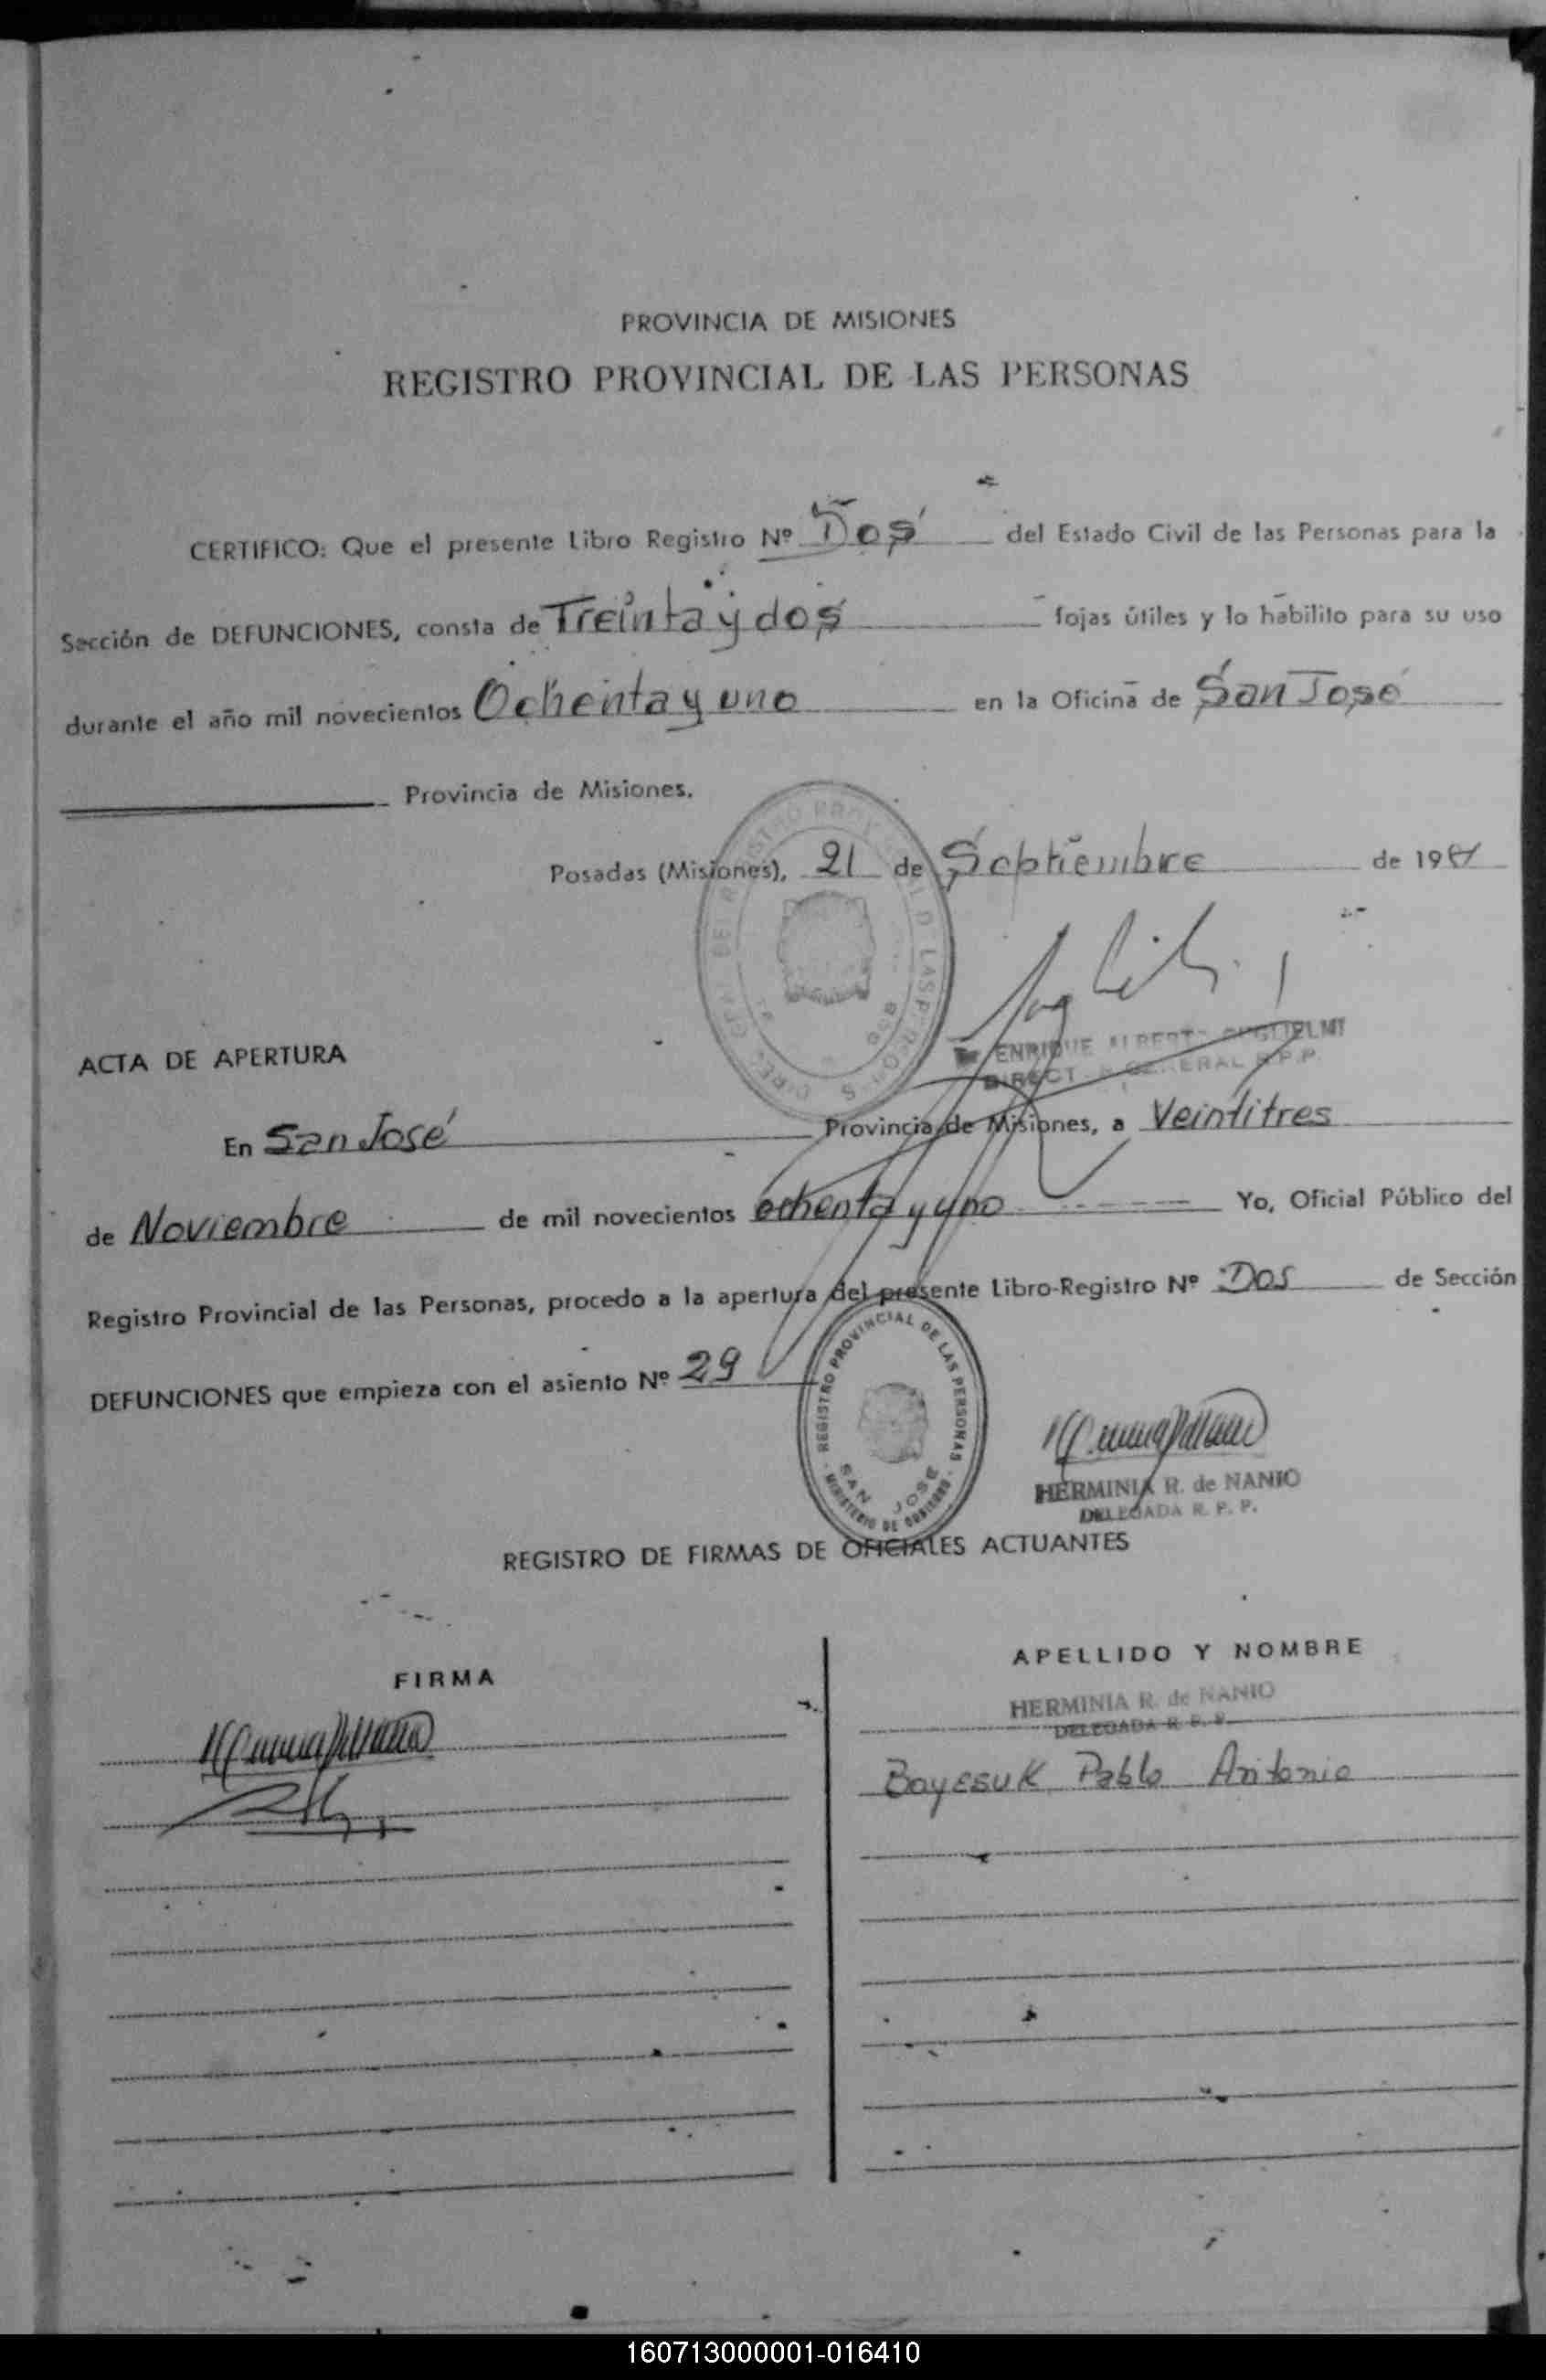 PROVINCIA DE MISIONES
REGISTRO PROVINCIAL DE LAS PERSONAS
CERTIFICO: Que el presente Libro Registro Nº Dos del Estado Civil de las Personas para la
Sección de DEFUNCIONES, consta de Treinta y dos fojas útiles y lo habilito para su uso
durante el año mil novecientos Ochenta y uno en la Oficina de San José
Provincia de Misiones.
Posadas (Misiones), 21 de Septiembre de 19
ENRIQUE ALBERTO GUGLIELMI
DIRECTOR GENERAL R.P.P.
ACTA DE APERTURA
En San José Provincia de Misiones, a Veintitres
de Noviembre de mil novecientos ochenta y uno Yo, Oficial Público del
Registro Provincial de las Personas, procedo a la apertura del presente Libro-Registro Nº Dos de Sección
DEFUNCIONES que empieza con el asiento Nº 29
REGISTRO PROVINCIAL DE LAS PERSONAS
SAN JOSE
MINISTERIO DE GOBIERNO
HERMINIA R. de NANIO
DELEGADA R. P. P.
REGISTRO DE FIRMAS DE OFICIALES ACTUANTES
FIRMA
APELLIDO Y NOMBRE
HERMINIA R. de NANIO
DELEGADA R. P. P.
Boyesuk Pablo Antonio
160713000001-016410